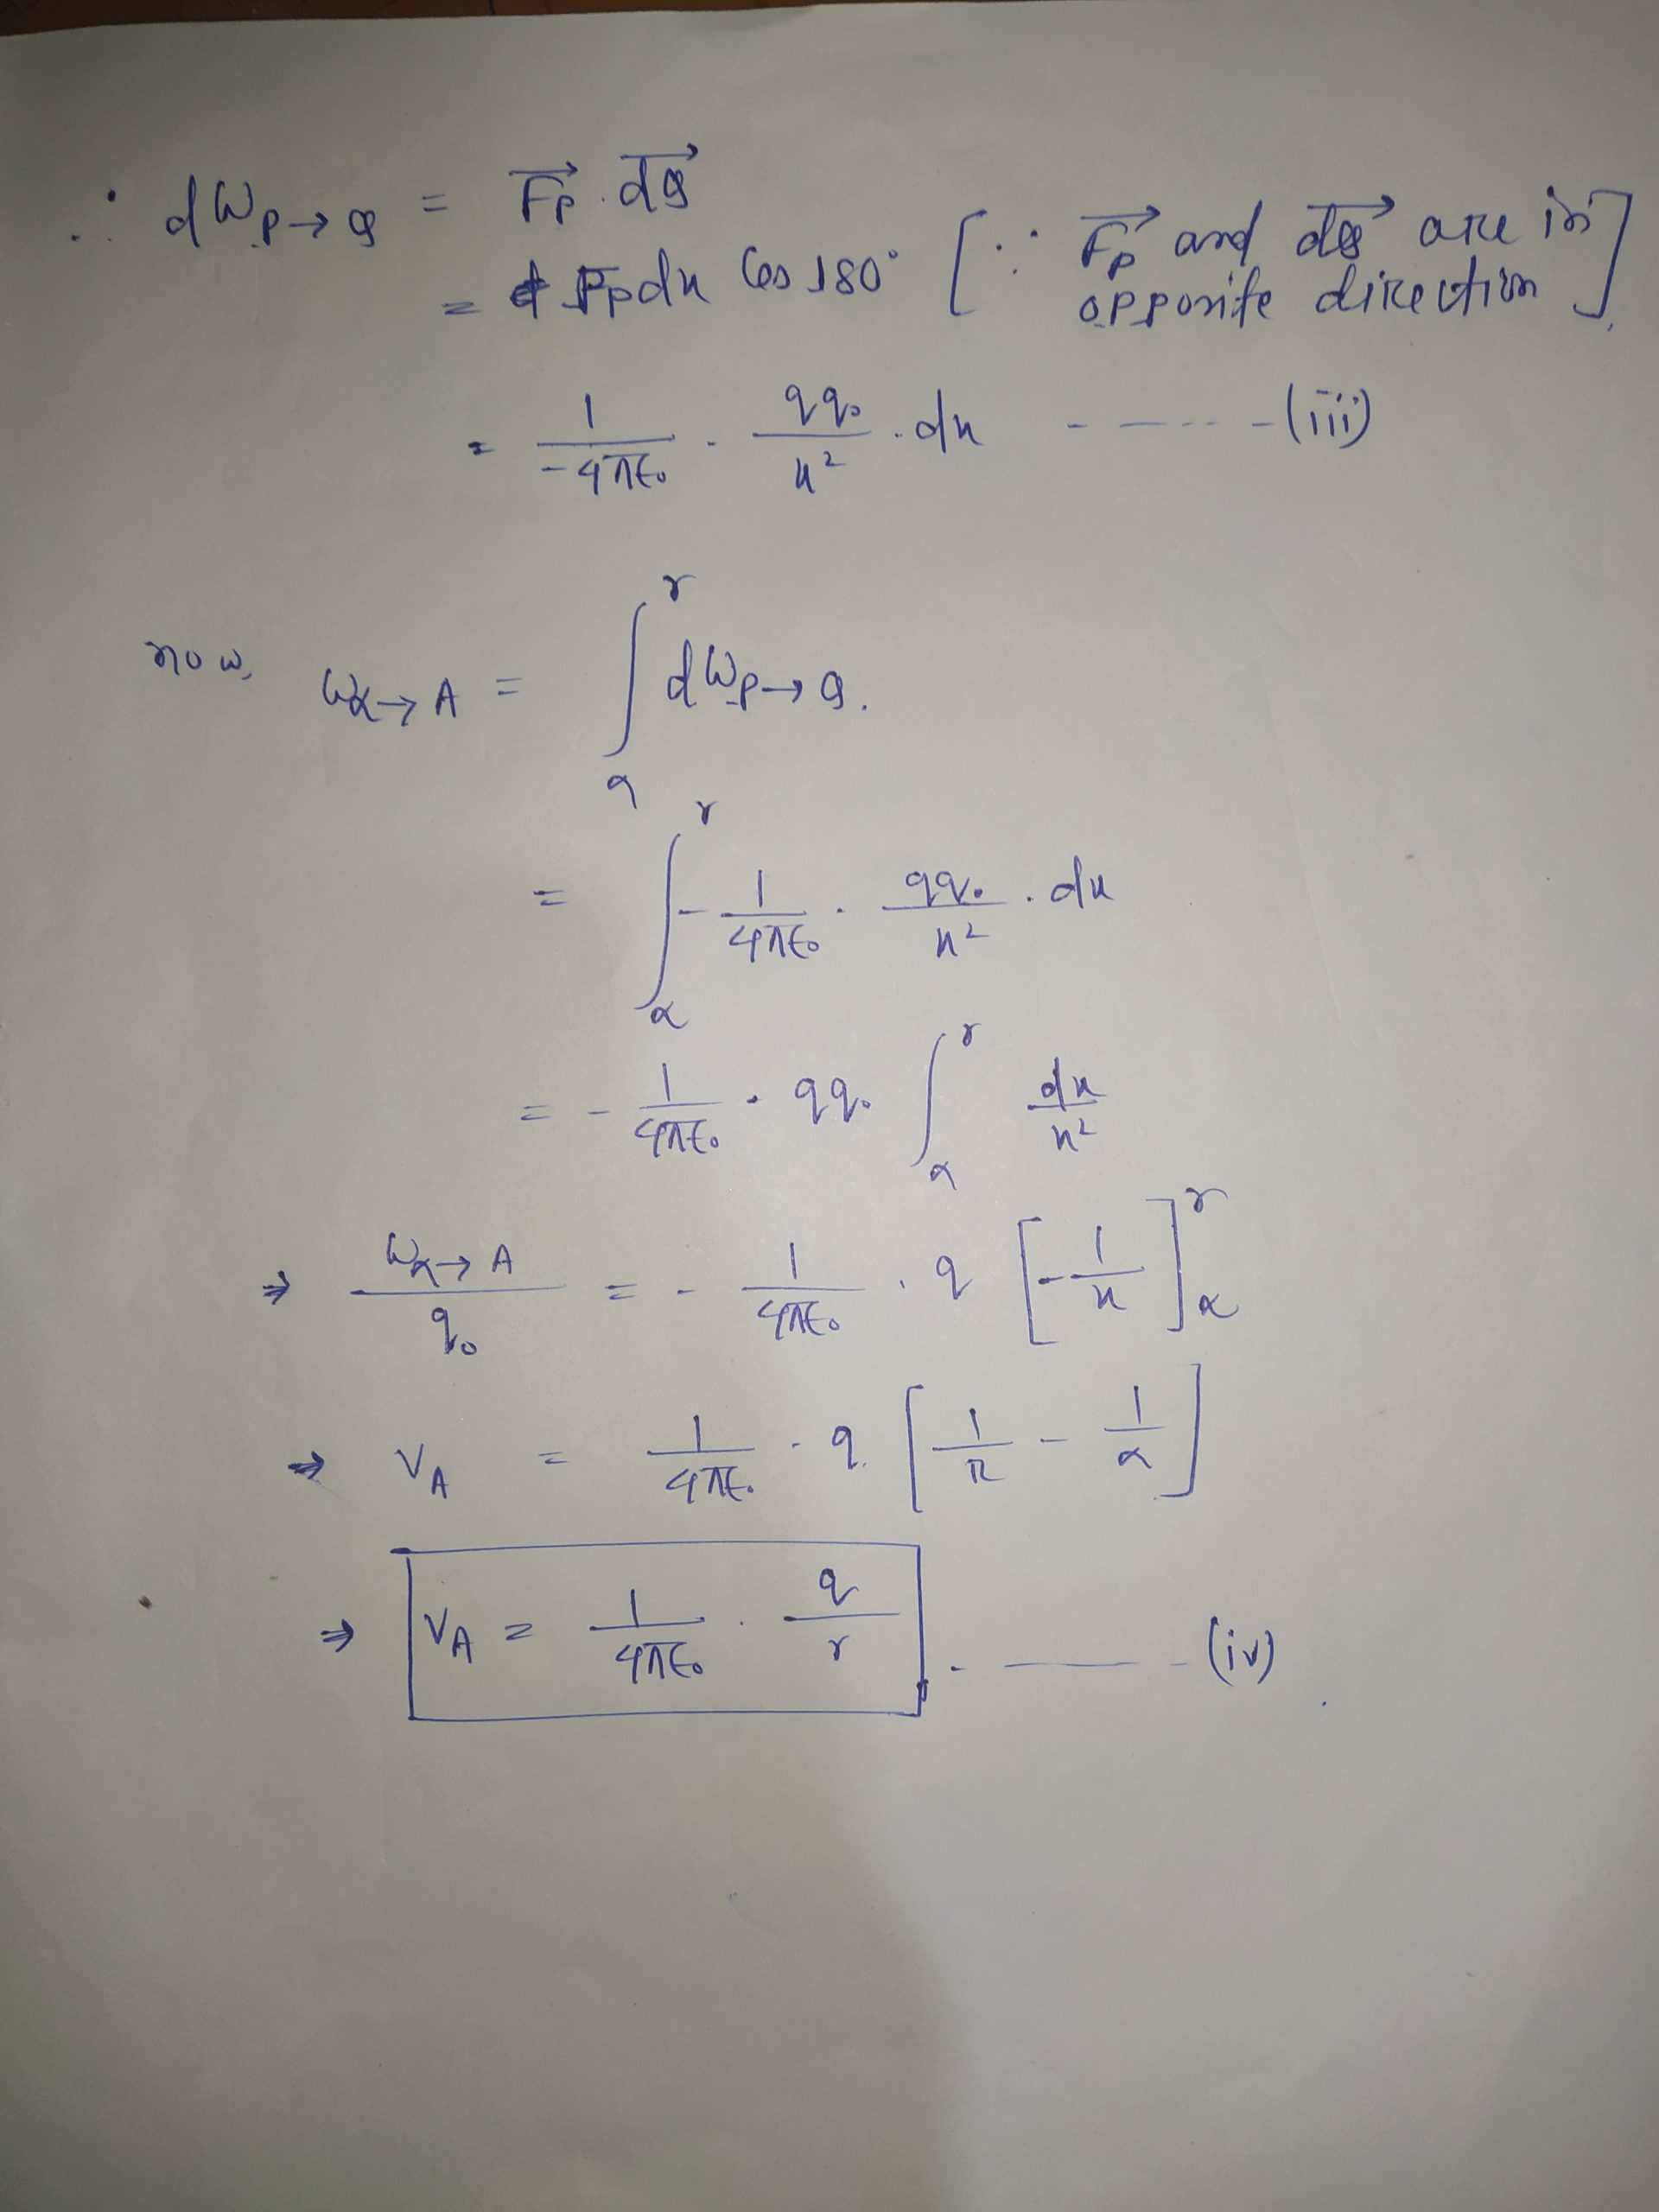 ∴ dW_P→Q = F_P→ . dQ→
= F_P dx Cos 180° [∵ F_P→ and dQ→ are in opposite direction]
= 1/-4πε₀ . qq₀/x² . dx -------(iii)
now, W_∝→A = ∫_∝^r dW_P→Q.
= ∫_∝^r - 1/4πε₀ . qq₀/x² . dx
= - 1/4πε₀ . qq₀ ∫_∝^r dx/x²
⇒ W_∝→A/q₀ = - 1/4πε₀ . q [-1/x]_∝^r
⇒ V_A = 1/4πε₀ . q. [1/r - 1/∝]
⇒ V_A = 1/4πε₀ . q/r . -------(iv)